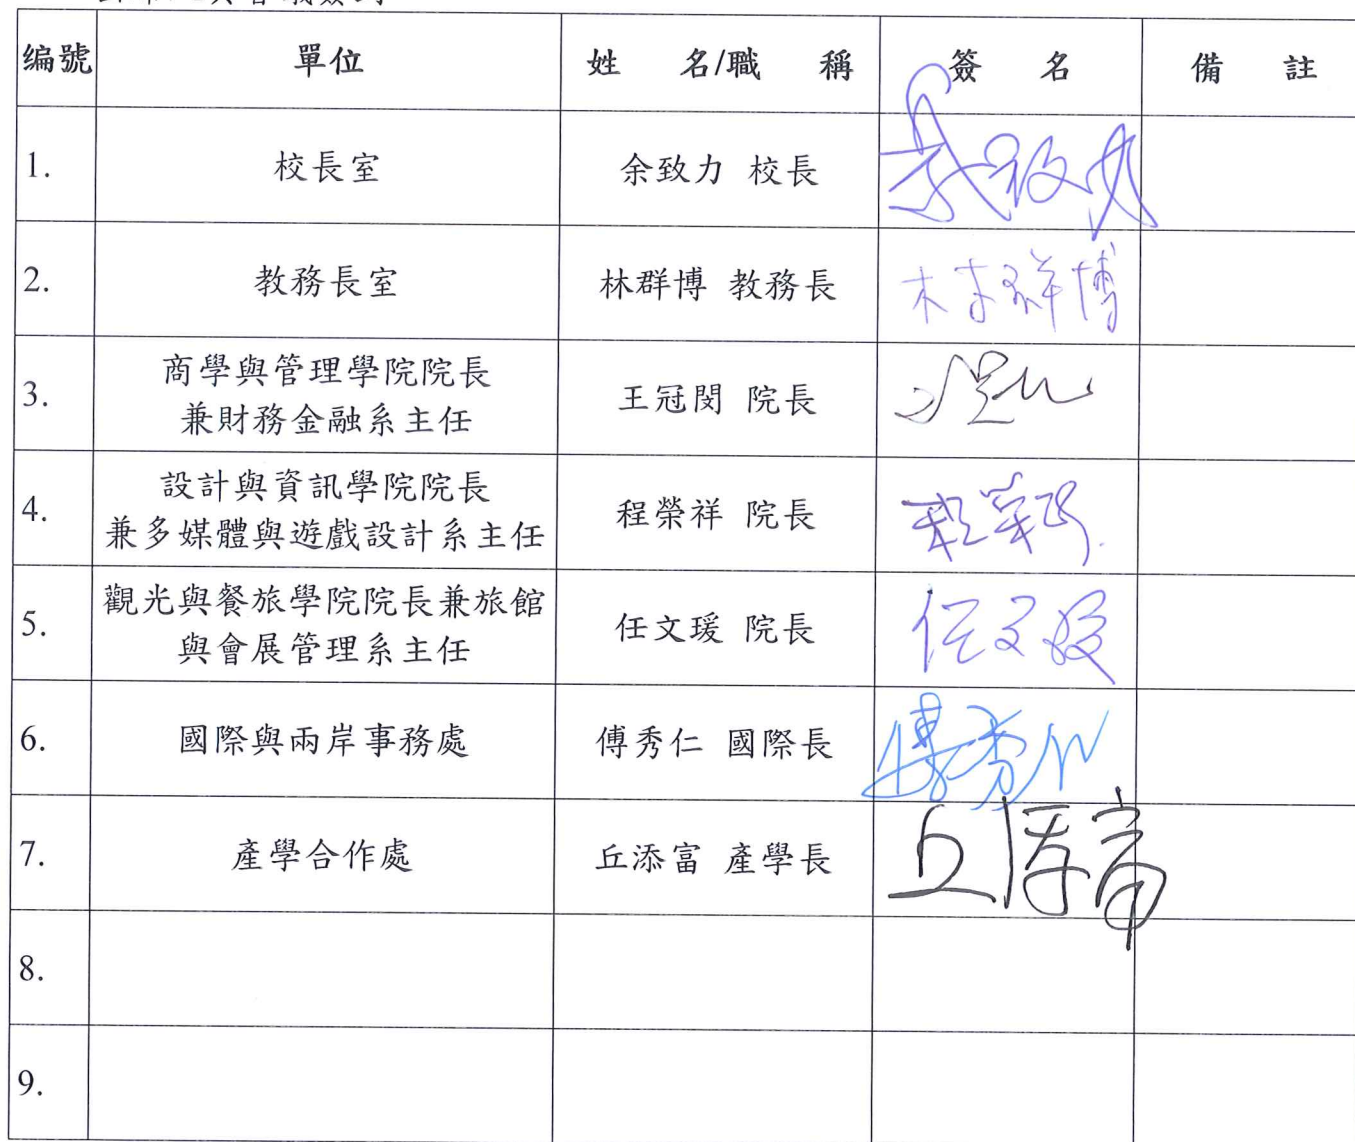 编號 單位 姓 名/職 稱 簽 名 備 註
1. 校長室 余致力 校長
2. 教務長室 林群博 教務長 林群博
3. 商學與管理學院院長
兼財務金融系主任 王冠閔 院長
4. 設計與資訊學院院長
兼多媒體與遊戲設計系主任 程榮祥 院長 程榮祥
5. 觀光與餐旅學院院長兼旅館
與會展管理系主任 任文瑗 院長 任文瑗
6. 國際與兩岸事務處 傅秀仁 國際長 傅秀仁
7. 產學合作處 丘添富 產學長 丘添富
8.
9.